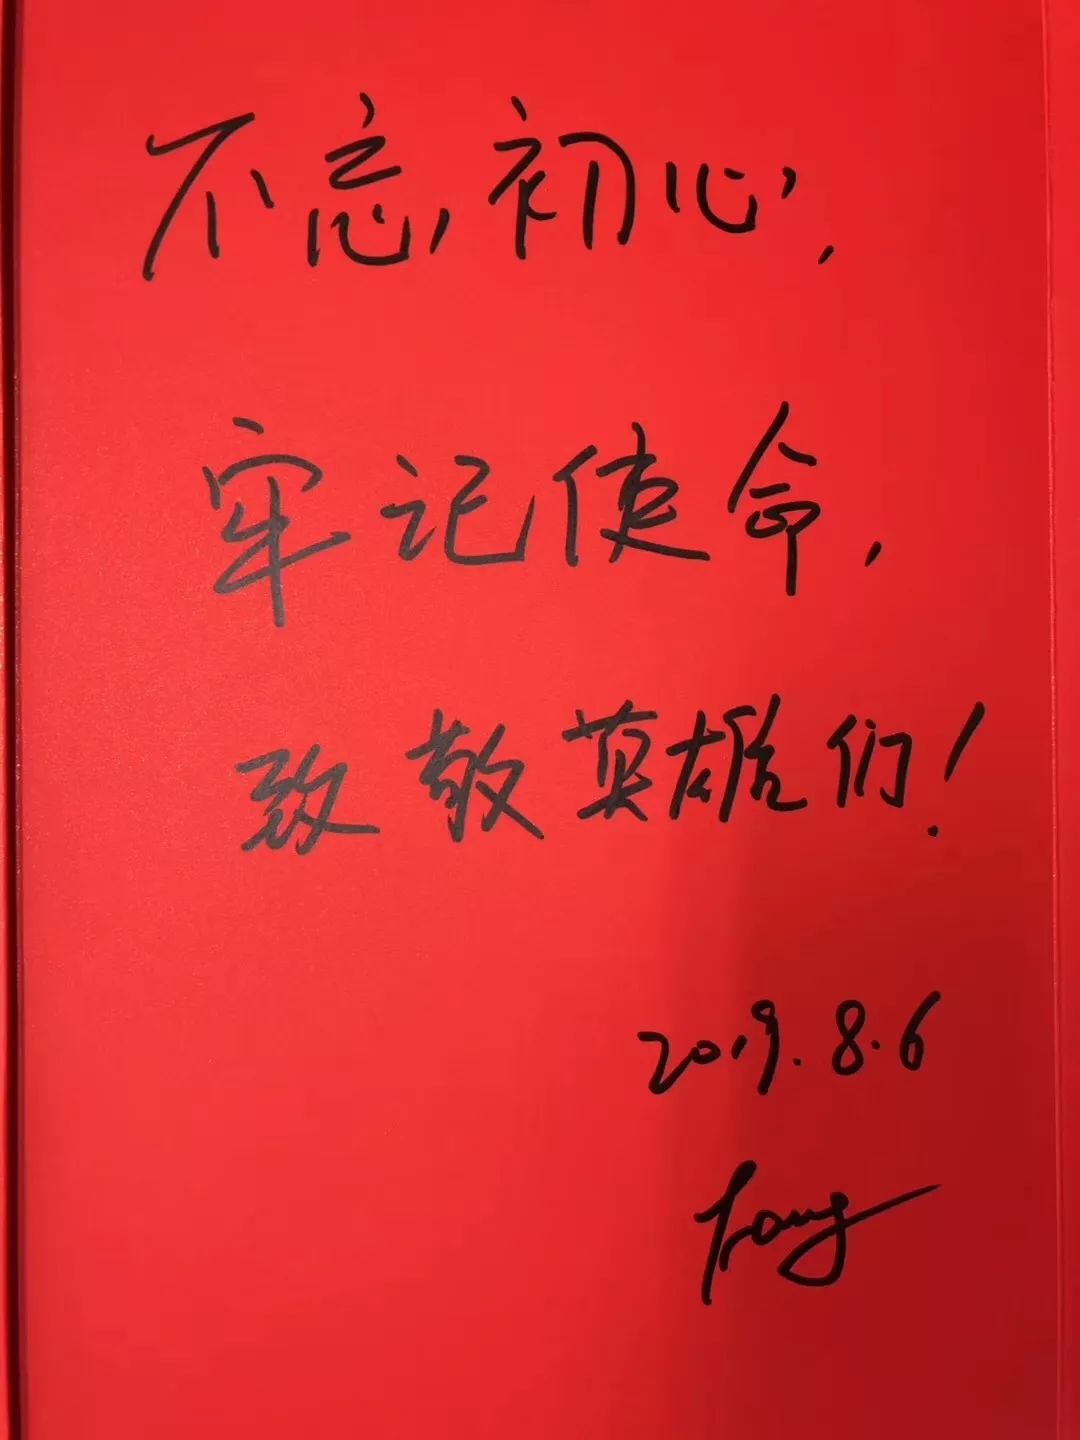 不忘初心，
牢记使命，
致敬英雄们！
2019.8.6